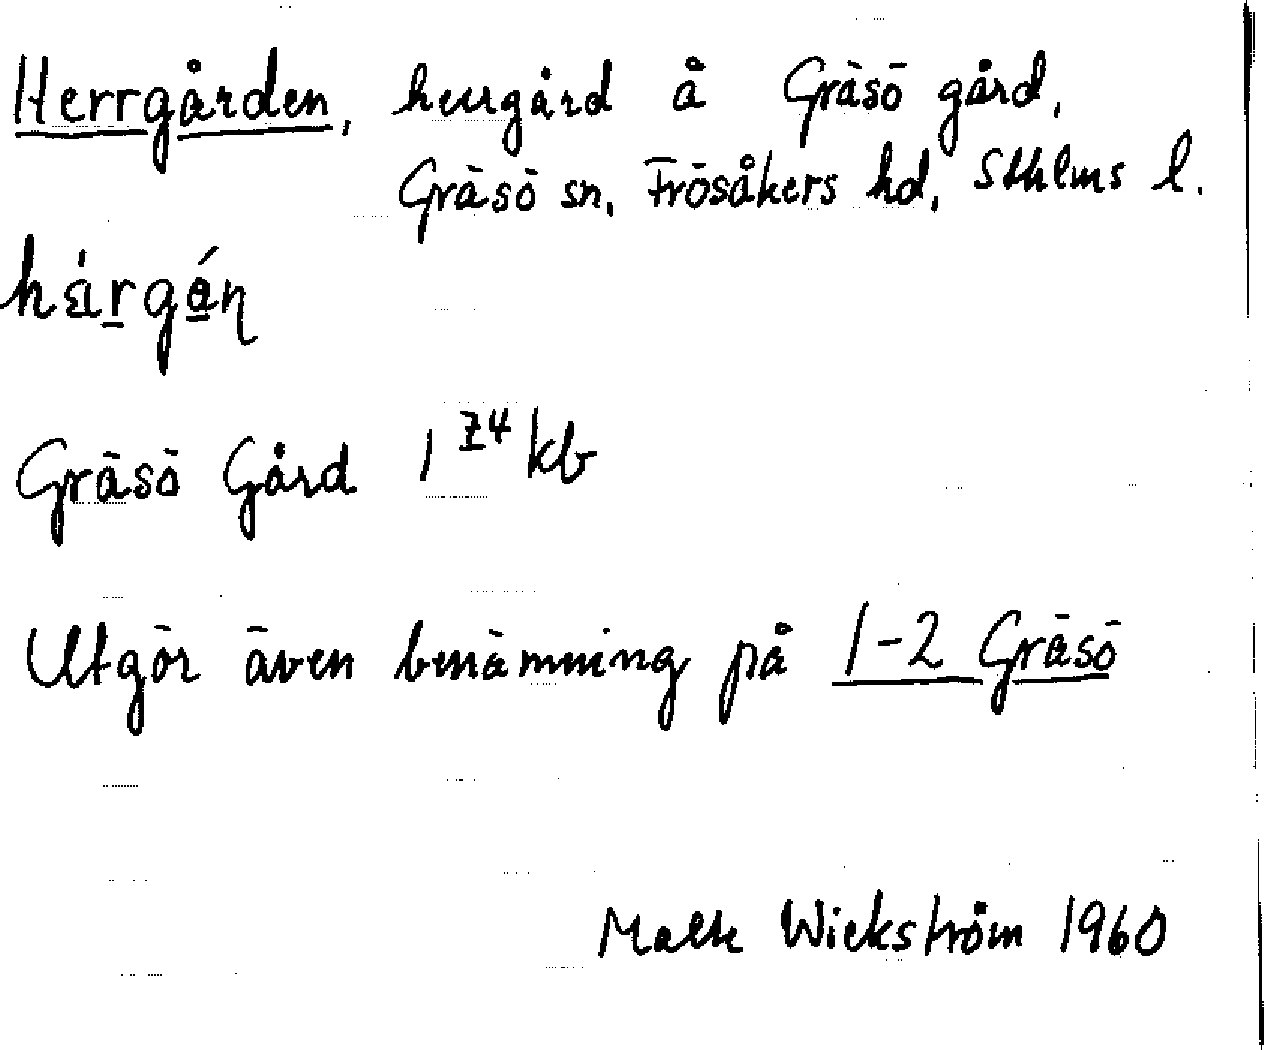 Herrgården, herrgård å Gräsö gård,
Gräsö sn, Frösåkers hd, Sthlms l.
Gräsö Gård 1 Z4 kb
Utgör även benämning på 1-2 Gräsö
Malte Wickström 1960